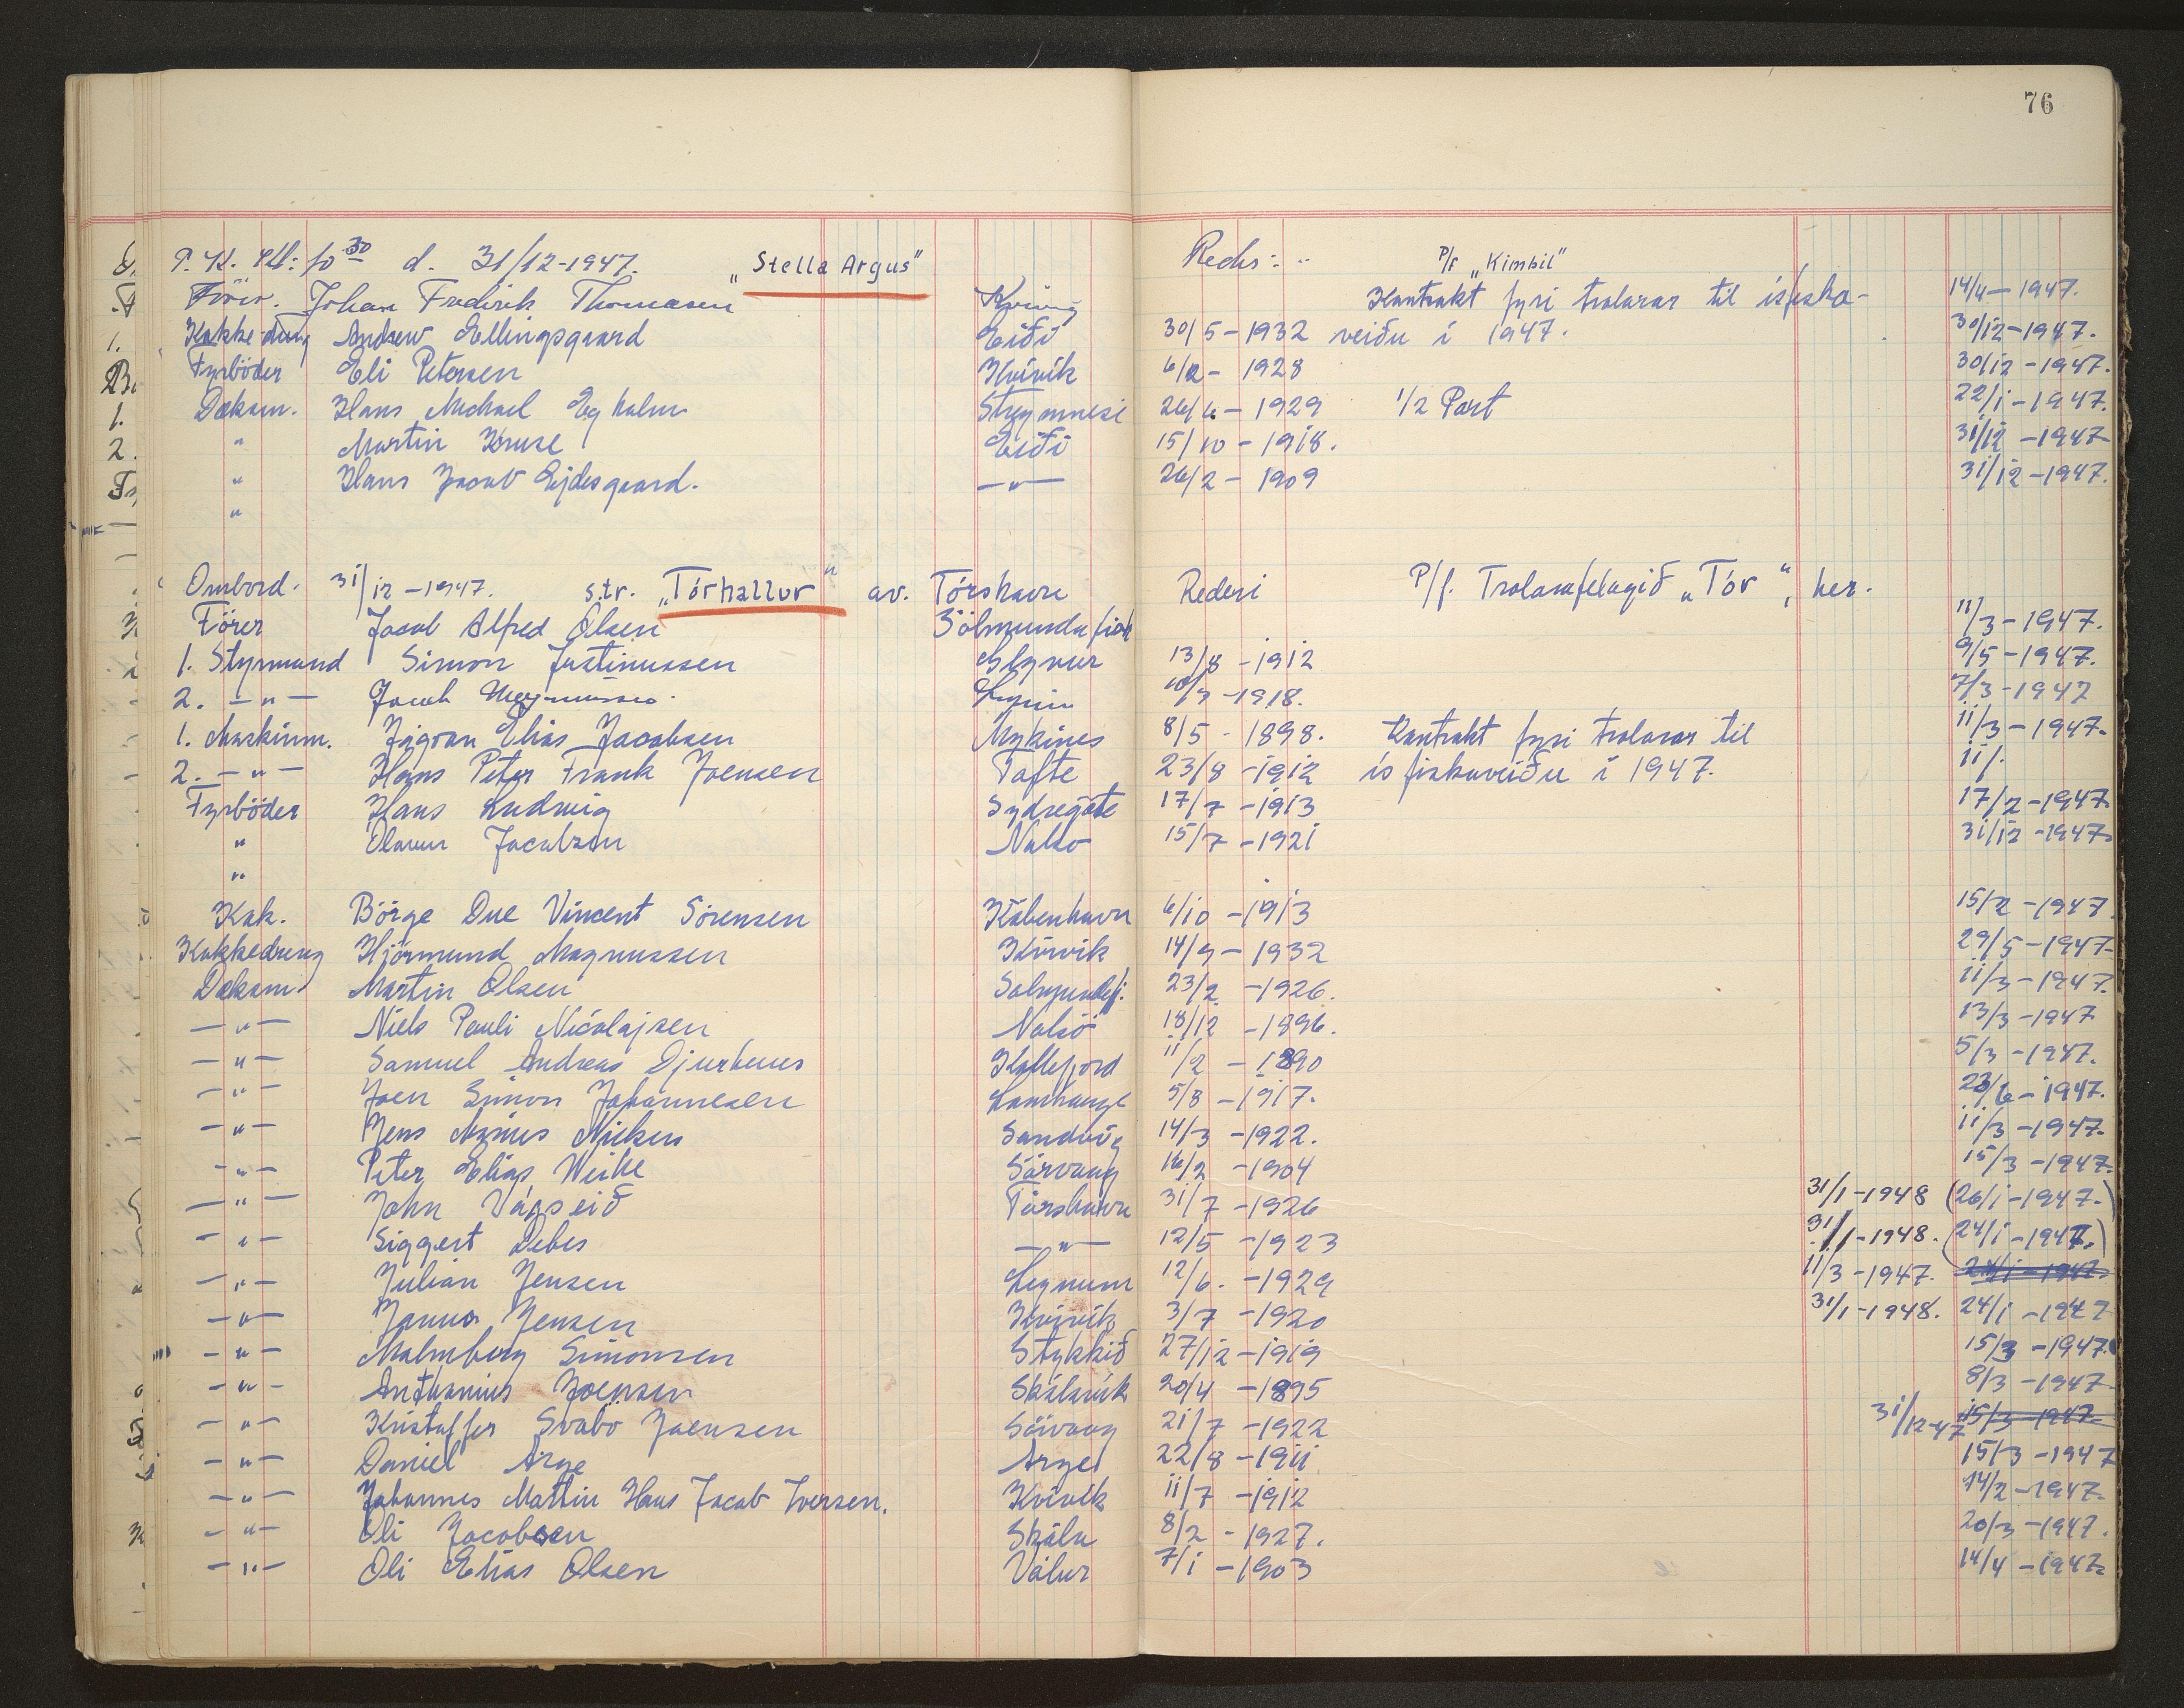 76
P. K. Kl: 10 30 d. 31/12-1947. "Stella Argus" Reds: P/f "Kimbil"
Förer. Johan Frederik Thomasen Kontrakt fyri trolarar til ísfiska- 14/4-1947.
Kokkedreng Andrew Ellingsgaard Eiði 30/5-1932 veiðu í 1947. 30/12-1947.
Fyrböder Eli Petersen Kvívík 1928 30/12-1947.
Dæksm. Hans Michael Egholm Streymnesi 26/6-1929 1/2 Part 22/1-1947.
" Martin Kruse Eiði 15/10-1918. 31/12-1947
" Hans Jacob Ejdesgaard. -"- 26/2-1909 31/12-1947.
"
Ombord. 31/12-1947. s.tr. "Tórhallur" av. Tórshavn Rederi P/f. Trolarafelagið "Tór", her.
Förer Jacob Alfred Olsen 11/3-1947.
1. Styrmand Simon Justinussen Glyvur 13/8-1912 9/5-1947.
2. -"- Jacob 1918. 7/3-1947
1. Maskinm. Jógvan Elias Jacobsen Mykines 8/5-1898. Kontrakt fyri trolarar til 11/3-1947.
2. -"- Hans Peter Frank Joensen Tofte 23/8-1912 ísfiskaveiðu í 1947. 11/.
Fyrböder Hans Ludwig Sydregöte 17/7-1913 17/2-1947
" Olavur Jacobsen Nolso 15/7-1921 31/12-1947
"
Kok. Börge Due Vincent Sörensen Köbenhavn 6/10-1913 15/2-1947.
Kokkedreng Hjörmund Magnussen Kvívík 14/9-1932 29/5-1947
Dæksm Martin Olsen Solmundefj. 23/2-1926. 11/3-1947.
-"- Niels Pauli Nicolajsen Nolsö 18/12-1896. 13/3-1947
-"- Samuel Andreas Djurhuus Kollefjord 11/2-1890 5/3-1947.
-"- Joen Simon Johannesen Lamhauge 5/8-1917. 23/6-1947.
-"- Jens Minius Nielsen Sandvig 14/3-1922. 11/3-1947.
-"- Peter Elias Weihe Sörvaag 16/2-1904 15/3-1947.
-"- John Vágseið Tórshavn 31/7-1926 31/1-1948 (26/1-1947.)
-"- Siggert Debes -"- 12/5-1923 31/1-1948. (24/1-1947.)
-"- Julian Jensen Legnum 12/6.-1929 11/3-1947. 24/1-1947.
-"- Janus Jensen Kvívík 3/7-1920 31/1-1948. 24/1-1947
-"- Malmberg Simonsen Stykkið 27/12-1919 15/3-1947.
-"- Anthonius Joensen Skálavík 20/4-1895 8/3-1947
-"- Kristoffer Svabo Joensen Sörvaag 21/7-1922 31/12-47 15/3-1947
-"- Daniel Arge Arge 22/8-1911 15/3-1947
-"- Johannes Martin Hans Jacob Iversen. Kvívík 11/7-1912 14/2-1947.
-"- Oli Jacobsen Skála 8/2-1927. 20/3-1947.
-"- Oli Elias Olsen Válur 7/1-1903 14/4-1947.